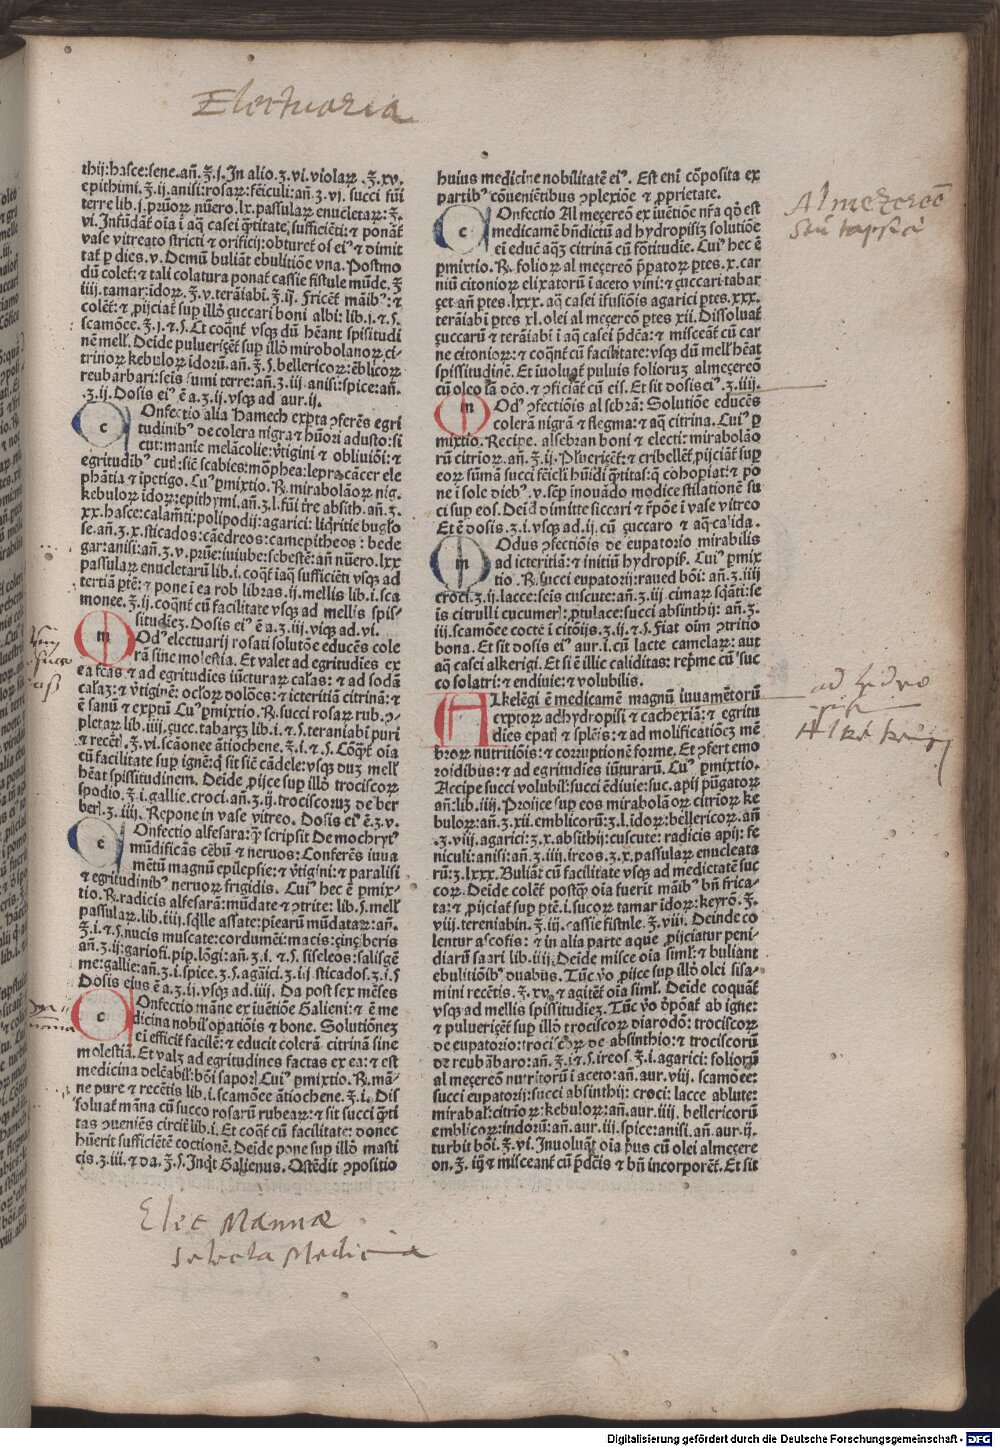 Electuaria
thij:hasce:sene.an̄.ʒ.j. In alio.ʒ.vi.violaꝝ.ʒ.xv.
epithimi.ʒ.ij.anisi:rosaꝝ:fēiculi:an̄.ʒ.vj. succi fūi
terre lib.j.pruoꝝ nūero.lx.passulaꝝ enucletaꝝ:ʒ.
vi. Infūdāt̄ oīa ī aq̄ casei q̄titate,sufficiēti:⁊ ponāt̄
vase vitreato stricti ⁊ orificij:obturet̄ os eiꝰ ⁊ dimit
tat̄ ꝑ dies.v. Demū buliāt ebulitiōe vna. Postmo
dū colet̄:⁊ tali colatura ponat̄ cassie fistule mūde.ʒ
iiij.tamar:idoꝝ.ʒ.v.terāiabi.ʒ.ij. Fricet̄ māibꝰ:⁊
colet̄:⁊ ꝓijciat̄ suꝑ illō ʒuccari boni albi:lib.i.⁊.s.
scamōee.ʒ.j.⁊.s. Et coqn̄t̄ vsqꝫ dū hēant spisitudi
nē mell̄. Deīde pulueriʒēt̄ suꝑ illō mirobolanoꝝ ci-
trinoꝝ kebuloꝝ idorū.an̄.ʒ.s.bellericoꝝ:ēblicoꝝ
reubarbari:seīs fumi terre:an̄.ʒ.iij.anisi:spice:an̄.
.ʒ.ij. Dosis eiꝰ ē a.ʒ.ij.vsqꝫ ad aur.ij.
c
Onfectio alia Hamech exꝑta ꝯferēs egri
tudinibꝰ de colera nigra ⁊ hūori adusto:si
cut:manie melācolie:v̄tigini ⁊ obliuiōi:⁊
egritudibꝰ cuti:sic̄ scabies:mōphea:lepra:cācer ele
phātia ⁊ īpetigo. Cuiꝰ ꝑmixtio. ℞. mirabolāoꝝ nig.
kebuloꝝ idoꝝ:epithymi.an̄.ʒ.l.fūi tr̄e absith.an̄.ʒ.
xx.hasce:calam̄ti:polipodij:agarici:liq̄ritie buglo
se.an̄.ʒ.x.sticados:cāedreos:camepitheos:bede
gar:anisi:an̄.ʒ.v.prūe:iuiube:sebestē:an̄ nūero.lxx
passulaꝝ enucletarū lib.i.coqt̄ īaq̄ sufficiēti vsqꝫ ad
tertiā ꝑtē:⁊ pone ī ea rob libras.ij.mellis lib.i.sca
monee.ʒ.ij.coqn̄t cū facilitate vsqꝫ ad mellis spis-
situdieʒ. Dosis eiꝰ ē a.ʒ.iij.vsqꝫ ad.vi.
m
Odꝰ electuarij rosati solutōe educēs cole
rā sine molestia. Et valet ad egritudies ex
ea fcās ⁊ ad egritudies iūcturaꝝ calas:⁊ ad sodā
calaʒ:⁊ v̄tiginē:ocloꝝ dolōes:⁊ icteritiā citrinā:⁊
ē sanū ⁊ exptū Cuiꝰ ꝑmixtio. ℞. succi rosaꝝ rub.ꝯ-
pletaꝝ lib.iiij.ʒucc.tabarʒ lib.i.⁊.s.teraniabi puri
⁊ recēt̄.ʒ.vi.scāonee ātiochene.ʒ.i.⁊.s. Coqt̄ oīa
cū facilitate sup ignē:q̄ sit siē cādele:vsqꝫ duʒ mell̄
hēat spissitudinem. Deīde ꝓijce suꝑ illō trociscoꝝ
spodio.ʒ.i.gallie.croci.an̄.ʒ.ij.trociscoruʒ de ber
berl̄.ʒ.iiij. Repone in vase vitreo. Dosis eiꝰ ē.ʒ.v.
c
Onfectio alfesara:q̄ scripsit Democrytꝰ
mūdificās cēbū ⁊ neruos:Conferēs iuua
mētū magnū epilepsie:⁊ v̄tigini:⁊ paralisi
⁊ egritudinibꝰ neruoꝝ frigidis. Cuiꝰ hec ē ꝑmix-
tio. ℞.radicis alfesarā:mūdate ⁊ ꝯtrite:lib.s.mell̄
passulaꝝ.lib.iiij.sq̄lle assate:pīearū mūdataꝝ:an̄.
ʒ.i.⁊.s.nucis muscate:cordumēi:macis:ʒinʒiberis
an̄.ʒ.ij:gariofi.pip.lōgi:an̄.ʒ.i.⁊.s.siseleos:salisgē
me:gallie:an̄.ʒ.i.spice.ʒ.s.agaīci.ʒ.ij sticados.ʒ.i.s
Dosis eius ē a.ʒ.ij.vsqꝫ ad.iiij. Da post sex mēses
c
Onfectio māne ex iuētiōe Galieni:⁊ ē me
dicina nobil̓ oꝑatiōis ⁊ bone. Solutiōneʒ
ei efficit̄ facilē:⁊ educit colerā citrinā sine
molestiā. Et valʒ ad egritudines factas ex ea:⁊ est
medicina delēabil̓:bōi sapor̄ Cuiꝰ ꝑmixtio. ℞.mā-
ne pure ⁊ recētis lib.i.scamōee ātiochene.ʒ.i. Dis
soluat̄ māna cū succo rosarū rubeaꝝ:⁊ sit succi q̄ti
tas ꝓueniēs circit̄ lib.i. Et coqt̄ cū facilitate:donec
hūerit sufficiētē coctionē. Deīde pone suꝑ illō masti
cis.ʒ.iii.⁊ da.ʒ.s. Inqt̄ Galienus. Ostēdit ꝯpositio
Elec Mannæ
Selecta Medicina
huius medicine nobilitatē eiꝰ. Est enī cōposita ex
partibꝰ cōueniētibus ꝯplexiōe ⁊ ꝓprietate.
c
Onfectio Almeʒereō ex iuētiōe nr̄a qð est
medicamē bn̄dictū ad hydropisiʒ solutiōe
ei educē aqʒ citrinā cū fōtitudie. Cuiꝰ hec ē
ꝑmixtio. ℞.folioꝝ almeʒereō p̄patoꝝ ꝑtes.x.car
niū citonioꝝ elixatorū ī aceto vini:⁊ ʒuccari tabar
ʒet an̄ ꝑtes.lxxx.aq̄ casei ifusiōis agarici ꝑtes.xxx.
terāiabī ꝑtes xl.olei almeʒereō ꝑtes xii. Dissoluat̄
ʒuccarū ⁊ terāiabi ī aq̄ casei p̄dcā:⁊ misceāt̄ cū car
ne citonioꝝ:⁊ coqn̄t cū facilitate:vsqꝫ dū mell̄ hēat
spissitudinē. Et īuoluat̄ puluis folioruʒ almeʒereō
cū oleo iā dcō.⁊ ꝯficiāt̄ cū eis. Et sit dosis eiꝰ.ʒ.iiij.
m
Odꝰ ꝯfectiōis alsebrā:Solutiōe educēs
colerā nigrā ⁊ flegma:⁊ aq̄ citrina. Cuiꝰ ꝑ
mixtio. Recipe.alsebran boni ⁊ electi:mirabolāo
rū citrioꝝ.an̄.ʒ.ij. Pulueriʒet̄:⁊ cribellet̄ ꝓijciāt̄ suꝑ
eoꝝ sūmā succi fēicli hūidi q̄tital:q̄ cohoꝑiat:⁊ po
ne ī sole diebꝰ.v.sēꝑ īnouādo modice stilationē su
ci sup eos. Deīd dimitte siccari ⁊ rēpōe ī vase vitreo
Et ē dosis.ʒ.i.vsqꝫ ad.ij.cū ʒuccaro ⁊ aq̄ calida.
m
Odus ꝯfectiōis de eupatorio mirabilis
ad icteritiā:⁊ initiū hydropis̄. Cuiꝰ ꝑmix
tio. ℞.succi eupatorij:raued bōi:an̄.ʒ.iiij
croci.ʒ.ij.lacce:seis cuscute:an̄.ʒ.iij cimar sq̄āti:se
is citrulli cucumer̄:portulace:succi absinthij:an̄.ʒ.
iij.scamōee cocte ī citōijs.ʒ.ij.⁊.s. Fiat oīm ꝯtritio
bona. Et sit dosis eiꝰ aur.i.cū lacte camelaꝝ:aut
aq̄ casei alkerigi. Et si ē illic caliditas:rep̄me cū suc
co solatri:⁊ endiuie:⁊ volubilis.
A
Lkelēgi ē medicamē magnū iuuamētorū
exptoꝝ ad hydropisī ⁊ cachexiā:⁊ egritu
dies epatꝭ ⁊ splēis:⁊ ad molificatiōeʒ mē
broꝝ nutritiōis:⁊ corruptionē forme. Et ꝯfert emo
roidibus:⁊ ad egritudies iūturarū. Cuiꝰ ꝑmixtio.
Accipe succi volubil̓:succi ēdiuie:suc.apij pūgatoꝝ
an̄:lib.iiij. Proijce suꝑ eos mirabolāoꝝ citrioꝝ ke
buloꝝ:an̄.ʒ.xii.emblicorū:ʒ.l.idoꝝ:bellericoꝝ.an̄
.ʒ.viij.agarici:ʒ.x.absithij:cuscute:radicis apij:fe
niculi:anisi:an̄.ʒ.iiij.ireos.ʒ.x.passulaꝝ enucleata
rū:ʒ.lxxx. Buliāt̄ cū facilitate vsqꝫ ad medictatē suc
coꝝ. Deīde colēt̄ postq̄ oīa fuerit māibꝰ bn̄ frica-
ta:⁊ ꝓijciat̄ suꝑ ptē.i.sucoꝝ tamar idoꝝ:keyrō.ʒ.
viij.tereniabin.ʒ.iij.cassie fistule.ʒ.viij. Deinde co
lentur ascosis:⁊ in alia parte aque ꝓijciatur peni-
diarū saari lib.iij. Deīde misce oīa siml̄:⁊ buliant
ebulitiōibꝰ duabus. Tūc v̄o ꝓijce suꝑ illō olei sisa-
mini recētis.ʒ.xv.⁊ agitēt̄ oīa siml̄. Deīde coquāt̄
vsqꝫ ad mellis spissitudieʒ. Tūc v̄o d̄pōat̄ ab igne:
⁊ pulueriʒēt̄ suꝑ illō trociscoꝝ diarodō:trociscoꝝ
de eupatorio:trociscoꝝ de absinthio:⁊ trociscorū
de reubābaro:an̄.ʒ.i.⁊.s.ireos.ʒ.i.agarici:foliorū
almeʒereō nutritorū ī aceto:an̄.aur.viij.scamōee:
succi eupatorij:succi absinthij:croci:lacce ablute:
mirabal:citrioꝝ:kebuloꝝ:an̄.aur.iiij.bellericorū
emblicoꝝ:indorū:an̄.aur.iij.spice:anisi.an̄.aur.ij.
turbit bōi.ʒ.vi. Inuoluāt̄ oīa p̄us cū oleo almeʒere
on.ʒ.iij ⁊ misceant̄ cū p̄dcīs ⁊ bn̄ incorporēt̄. Et sit
Almezereō
ad hydro
Alkekengi
Digitalisierung gefördert durch die Deutsche Forschungsgemeinschaft - DFG